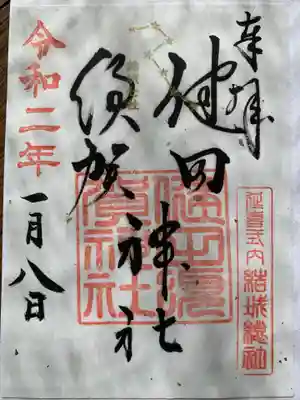 奉拝
延喜式内 結城總社
健田神社
須賀神社
健田須
賀神社
令和二年
一月八日